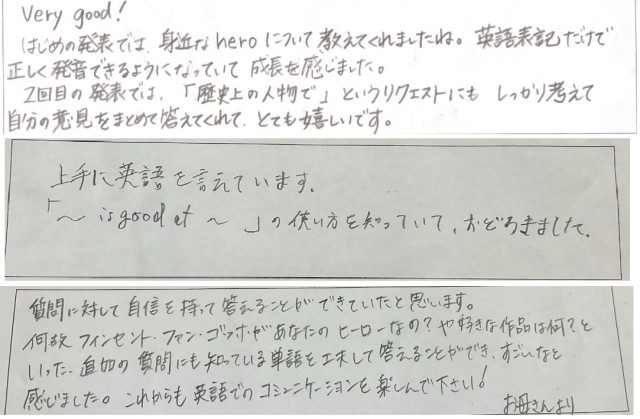 Very good!
はじめの発表では、身近なheroについて教えてくれましたね。英語表記だけで
正しく発音できるようになっていて成長を感じました。
2回目の発表では、「歴史上の人物で」というリクエストにもしっかり考えて
自分の意見をまとめて答えてくれて、とても嬉しいです。
上手に英語を言えています。
「～ is good at ～」の使い方を知っていて、おどろきました。
質問に対して自信を持って答えることができていたと思います。
何故フィンセント・ファン・ゴッホがあなたのヒーローなの?や好きな作品は何?と
いった、追加の質問にも知っている単語を工夫して答えることができ、すごいなと
感じました。これからも英語でのコミュニケーションを楽しんで下さい!
お母さんより